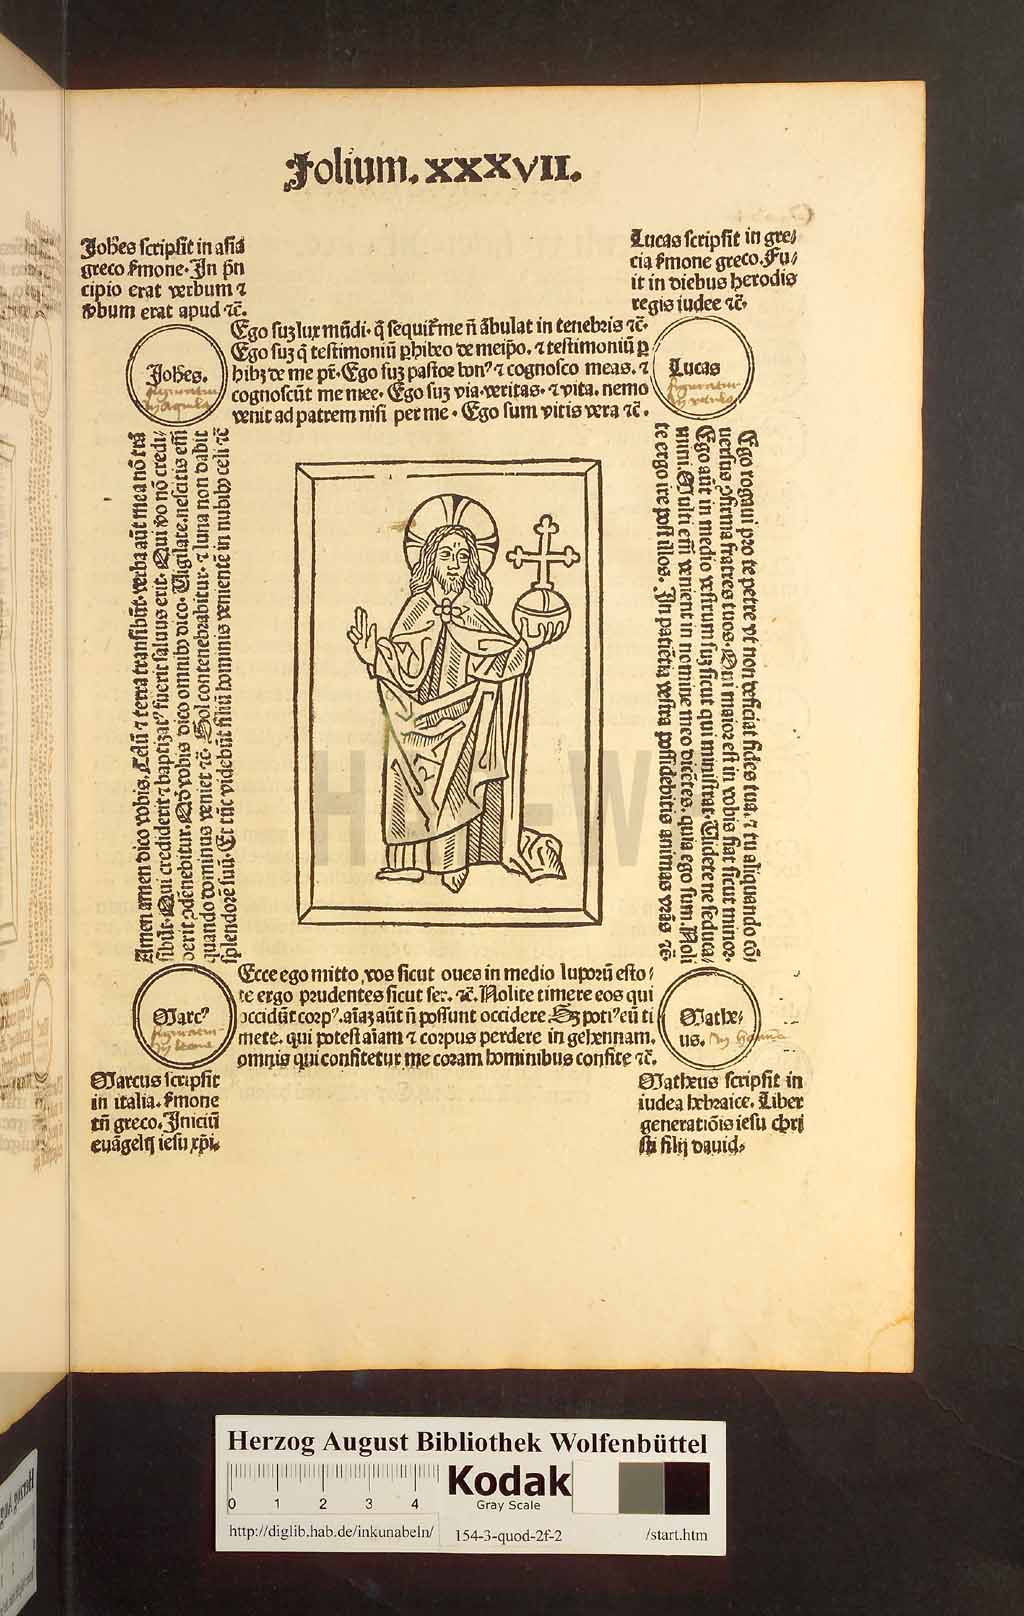 Folium. XXXVII.
Joh̄es scripsit in asia
greco s̄mone. In p̄n
cipio erat verbum ⁊
v̄bum erat apud ⁊c̄.
Lucas scripsit in gre/
cia s̄mone greco. Fu/
it in diebus herodis
regis iudee ⁊c̄.
Ego suꝫ lux mūdi. q̄ sequit̄ me n̄ ābulat in tenebris ⁊c̄.
Ego suꝫ q̄ testimoniū ꝑhibeo de meip̄o. ⁊ testimoniū ꝑ
hibꝫ de me pr̄. Ego suꝫ pastor bonꝰ ⁊ cognosco meas. ⁊
cognoscūt me mee. Ego suꝫ via. veritas. ⁊ vita. nemo
venit ad patrem nisi per me. Ego sum vitis vera ⁊c̄.
Joh̄es.
figuratur
in aquila
Lucas
figuratur
in vitulo
Amen amen dico vobis. Celū ⁊ terra transibūt. verba aūt mea nō trā
sibūt. Qui crediderit ⁊ baptizatꝰ fuerit saluus erit. Qui v̄o nō credi-
derit ꝯdēnebitur. Qd̄ vobis dico omnibꝰ dico. Vigilate. nescitis em̄
quando dominus veniet ⁊c̄. Sol contenebrabitur. ⁊ luna non dabit
splendorē suū. Et tūc videbūt filiū hominis venientē in nubibꝰ celi ⁊c̄
Ego rogaui pro te petre vt non deficiat fides tua. ⁊ tu aliquando cō/
uersus ꝯfirma fratres tuos. Qui maior est in vobis fiat sicut minor.
Ego aūt in medio vestrum suꝫ sicut qui ministrat. Videte ne seduca/
mini. Multi em̄ venient in nomine meo dicētes. quia ego sum. Noli
te ergo ire post illos. In patiētia vestra possidebitis animas vr̄as ⁊c̄.
Ecce ego mitto vos sicut oues in medio luporū esto/
te ergo prudentes sicut ser. ⁊c̄. Nolite timere eos qui
occidūt corpꝰ. aīaꝫ aūt n̄ possunt occidere. Sꝫ potiꝰ eū ti
mete. qui potest aīam ⁊ corpus perdere in gehennam.
omnis qui confitetur me coram hominibus confite ⁊c̄.
Marcꝰ
figuratur
in leone
Mathe/
us.
Marcus scripsit
in italia. s̄mone
tn̄ greco. Iniciū
euāgelij iesu xp̄i.
Matheus scripsit in
iudea hebraice. Liber
generatiōis iesu chri
sti filij dauid.
HAB-W
Herzog August Bibliothek Wolfenbüttel
0 1 2 3 4
Kodak
Gray Scale
http://diglib.hab.de/inkunabeln/ 154-3-quod-2f-2 /start.htm